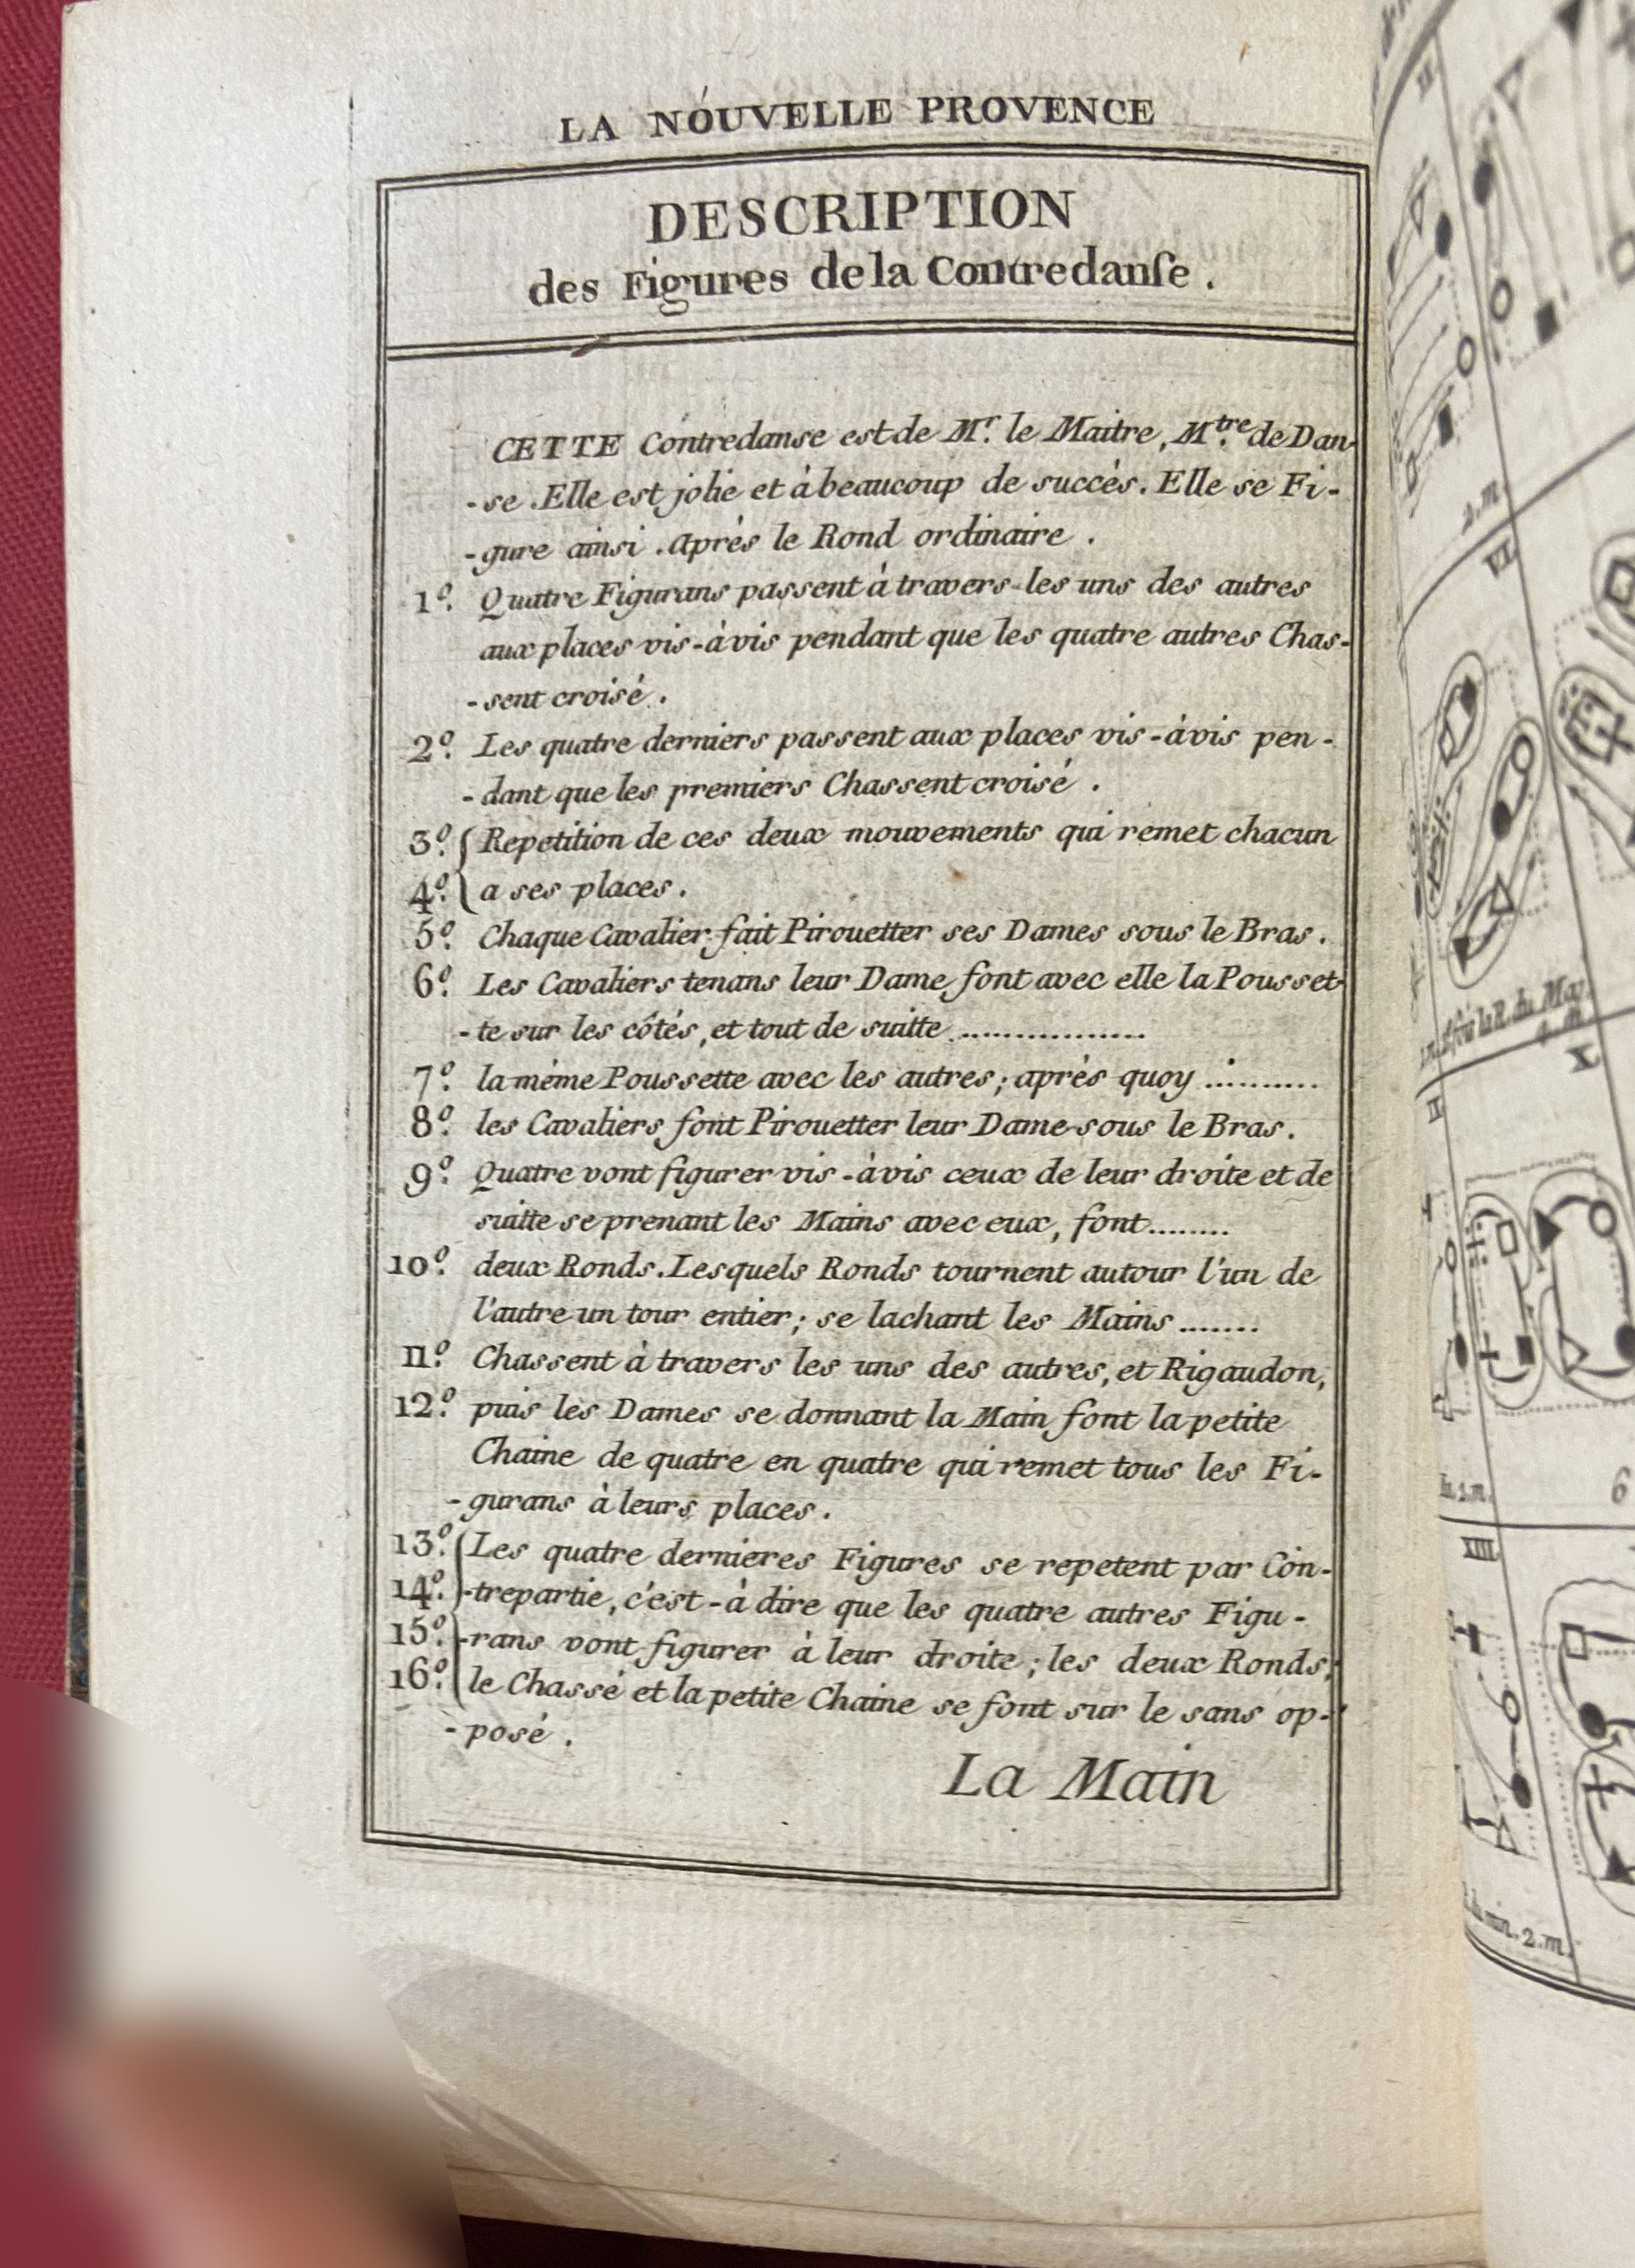 LA NOUVELLE PROVENCE
DESCRIPTION
des Figures de la Contredanſe.
CETTE Contredanse est de Mr. le Maitre, Mtre. de Dan-
-se. Elle est jolie et à beaucoup de succès. Elle se Fi-
-gure ainsi. après le Rond ordinaire.
1º. Quatre Figurans passent à travers les uns des autres
aux places vis-à vis pendant que les quatre autres Chas-
-sent croisé.
2º. Les quatre derniers passent aux places vis-à vis pen-
-dant que les premiers Chassent croisé.
3º. { Repetition de ces deux mouvements qui remet chacun
4º. { a ses places.
5º. Chaque Cavalier fait Pirouetter ses Dames sous le Bras.
6º. Les Cavaliers tenans leur Dame font avec elle la Pousset-
-te sur les côtés, et tout de suitte ................
7º. la même Poussette avec les autres; après quoy ..........
8º. les Cavaliers font Pirouetter leur Dame sous le Bras.
9º. Quatre vont figurer vis-à vis ceux de leur droite et de
suitte se prenant les Mains avec eux, font ........
10º. deux Ronds. Lesquels Ronds tournent autour l'un de
l'autre un tour entier; se lachant les Mains .......
11º. Chassent à travers les uns des autres, et Rigaudon,
12º. puis les Dames se donnant la Main font la petite
Chaine de quatre en quatre qui remet tous les Fi-
-gurans à leurs places.
13º. { Les quatre dernieres Figures se repetent par Con-
14º. { -trepartie, c'est-à dire que les quatre autres Figu-
15º. { -rans vont figurer à leur droite; les deux Ronds,
16º. { le Chassé et la petite Chaine se font sur le sans op-
-posé.
La Main
II
2. m.
VI
la R. du Maj.
X
II
6
XIII
min. 2. m.